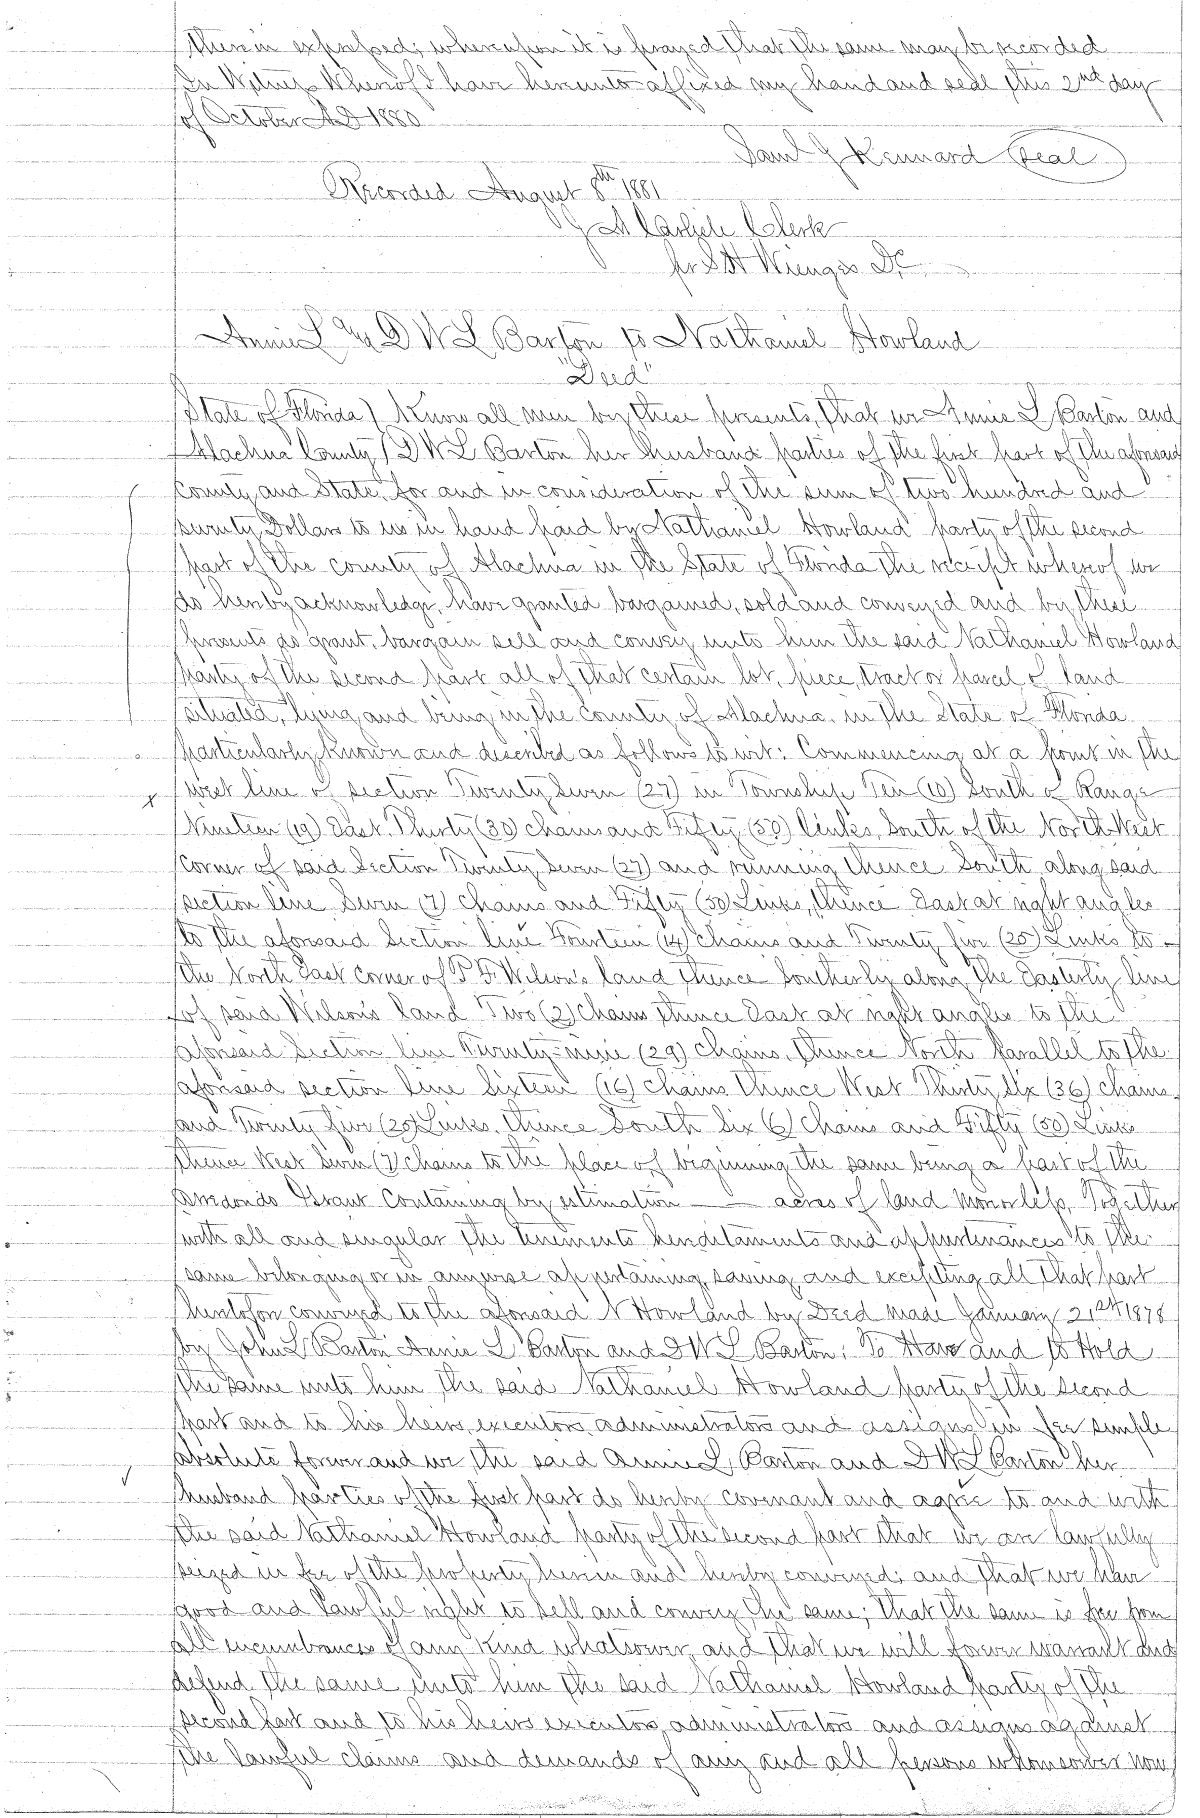 therein expressed; whereupon it is prayed that the same may be recorded
In Witness Whereof I have hereunto affixed my hand and seal this 2nd day
of October AD 1880
Saml J Kennard Seal
Recorded August 8th 1881
J A Carlisle Clerk
pr S H Wienges D.C.
Annie L and D W L Barton to Nathaniel Howland
"Deed"
State of Florida ) Know all men by these presents, that we Annie L Barton and
Alachua County ) D W L Barton her husband parties of the first part of the aforesaid
County and State, for and in consideration of the sum of two hundred and
seventy Dollars to us in hand paid by Nathaniel Howland party of the second
part of the county of Alachua in the State of Florida the receipt whereof we
do hereby acknowledge, have granted bargained, sold and conveyed and by these
presents do grant, bargain sell and convey unto him the said Nathaniel Howland
party of the second part all of that certain lot, piece, tract or parcel of land
situated, lying and being in the county of Alachua, in the State of Florida
particularly known and described as follows to wit: Commencing at a point in the
x west line of section Twenty Seven (27) in Township Ten (10) South of Range
Nineteen (19) East, Thirty (30) chains and Fifty (50) links, South of the North West
corner of said Section Twenty Seven (27) and running thence South along said
section line Seven (7) chains and Fifty (50) Links, thence East at right angles
to the aforesaid Section line Fourteen (14) chains and Twenty five (25) Links to
the North East corner of P F Wilson's land thence Southerly along the Easterly line
of said Wilson's land Two (2) chains thence East at right angles to the
aforesaid Section line Twenty-nine (29) chains, thence North Parallel to the
aforesaid section line Sixteen (16) chains thence West Thirty Six (36) chains
and Twenty five (25) Links, thence South Six (6) chains and Fifty (50) Links
thence West Seven (7) chains to the place of beginning the same being a part of the
Arredondo Grant Containing by estimation —— acres of land more or less, Together
with all and singular the tenements hereditaments and appurtenances to the
same belonging or in anywise appertaining, saving and excepting all that part
heretofore conveyed to the aforesaid N Howland by Deed made January 21st 1878
by John L Barton Annie L Barton and D W L Barton; To Have and to Hold
the same unto him the said Nathaniel Howland party of the second
part and to his heirs, executors, administrators and assigns in fee simple
absolute forever and we the said Annie L Barton and D W L Barton her
husband parties of the first part do hereby covenant and agree to and with
the said Nathaniel Howland party of the second part that we are lawfully
seized in fee of the property herein and hereby conveyed; and that we have
good and lawful right to sell and convey the same; that the same is free from
all incumbrances of any kind whatsoever, and that we will forever warrant and
defend the same unto him the said Nathaniel Howland party of the
second part and to his heirs executors, administrators and assigns against
the lawful claims and demands of any and all persons whomsoever now